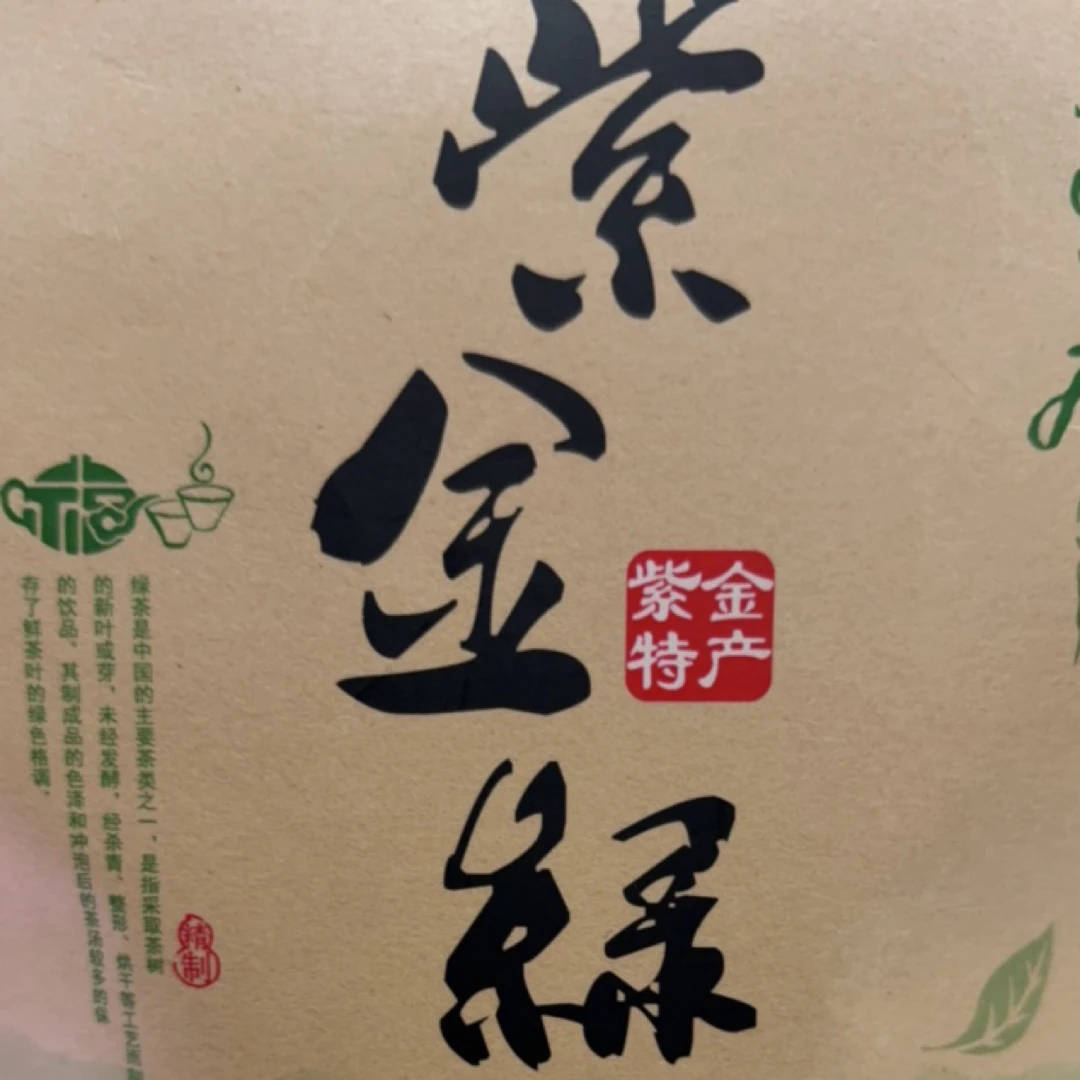 紫金绿
紫金
特产
福
绿茶是中国的主要茶类之一,是指采取茶树
的新叶或芽,未经发酵,经杀青、整形、烘干等工艺而制
的饮品,其制成品的色泽和冲泡后的茶汤较多的保
存了鲜茶叶的绿色格调。
精制